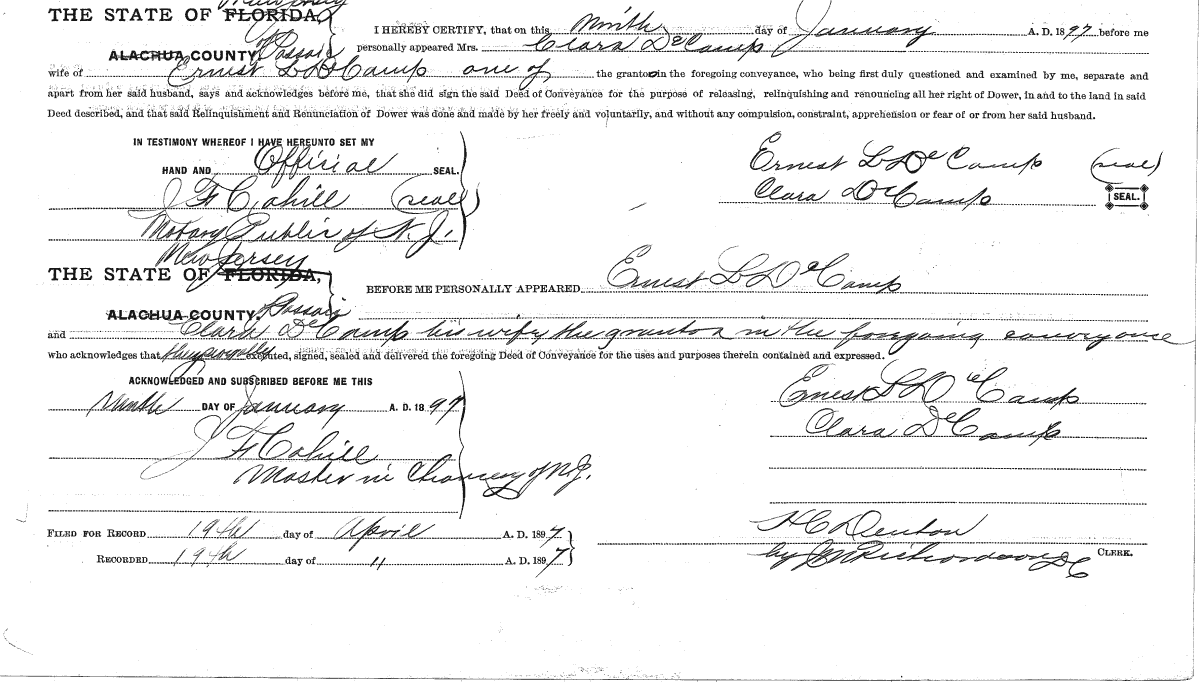 New Jersey
THE STATE OF FLORIDA, I HEREBY CERTIFY, that on this Ninth day of January A. D. 1897 before me
ALACHUA COUNTY. of Passaic personally appeared Mrs. Clara DeCamp
wife of Ernest L DeCamp one of the grantor in the foregoing conveyance, who being first duly questioned and examined by me, separate and
apart from her said husband, says and acknowledges before me, that she did sign the said Deed of Conveyance for the purpose of releasing, relinquishing and renouncing all her right of Dower, in and to the land in said
Deed described, and that said Relinquishment and Renunciation of Dower was done and made by her freely and voluntarily, and without any compulsion, constraint, apprehension or fear of or from her said husband.
IN TESTIMONY WHEREOF I HAVE HEREUNTO SET MY
HAND AND Official SEAL.
J F Cahill (seal)
Notary Public of N. J.
Ernest L DeCamp (seal)
Clara DeCamp SEAL.
New Jersey
THE STATE OF FLORIDA, BEFORE ME PERSONALLY APPEARED Ernest L DeCamp
ALACHUA COUNTY. Passaic
and Clara DeCamp his wife, the grantor in the foregoing conveyance
who acknowledges that they executed, signed, sealed and delivered the foregoing Deed of Conveyance for the uses and purposes therein contained and expressed.
ACKNOWLEDGED AND SUBSCRIBED BEFORE ME THIS
Ninth DAY OF January A. D. 1897
J F Cahill
Master in Chancery of N. J.
Ernest L DeCamp
Clara DeCamp
FILED FOR RECORD 19th day of April A. D. 1897
RECORDED 19th day of " A. D. 1897
H C Denton
by J M Richardson D C CLERK.